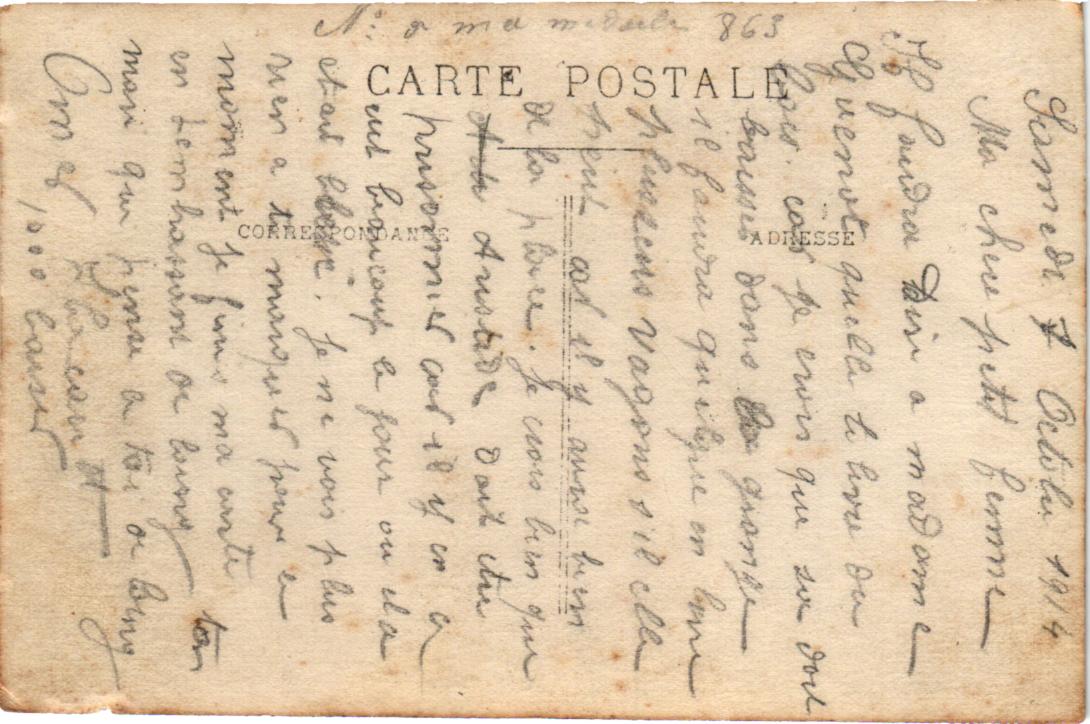 N° a ma medaile 863
CARTE POSTALE
CORRESPONDANCE
ADRESSE
Samedi 7 Octobre 1914
Ma chere petit femme
Il faudra Dir a madame
Guenot quelle te livre du
bois. car je crois que sa doit
baisser dans la grange
il faudra quelque en livre
plusieurs vagons s'il elle
peut car il y aura bien
de la place. Je crois bien que
Aristide doit etre
prisonnier car il y en a
eut beaucoup le jour ou ila
etait blesse. Je ne vois plus
rien a te marquer pour ce
moment je finis ma carte
en tembrassant de loing ton
mari qui pense a toi de loing
1000 baiser